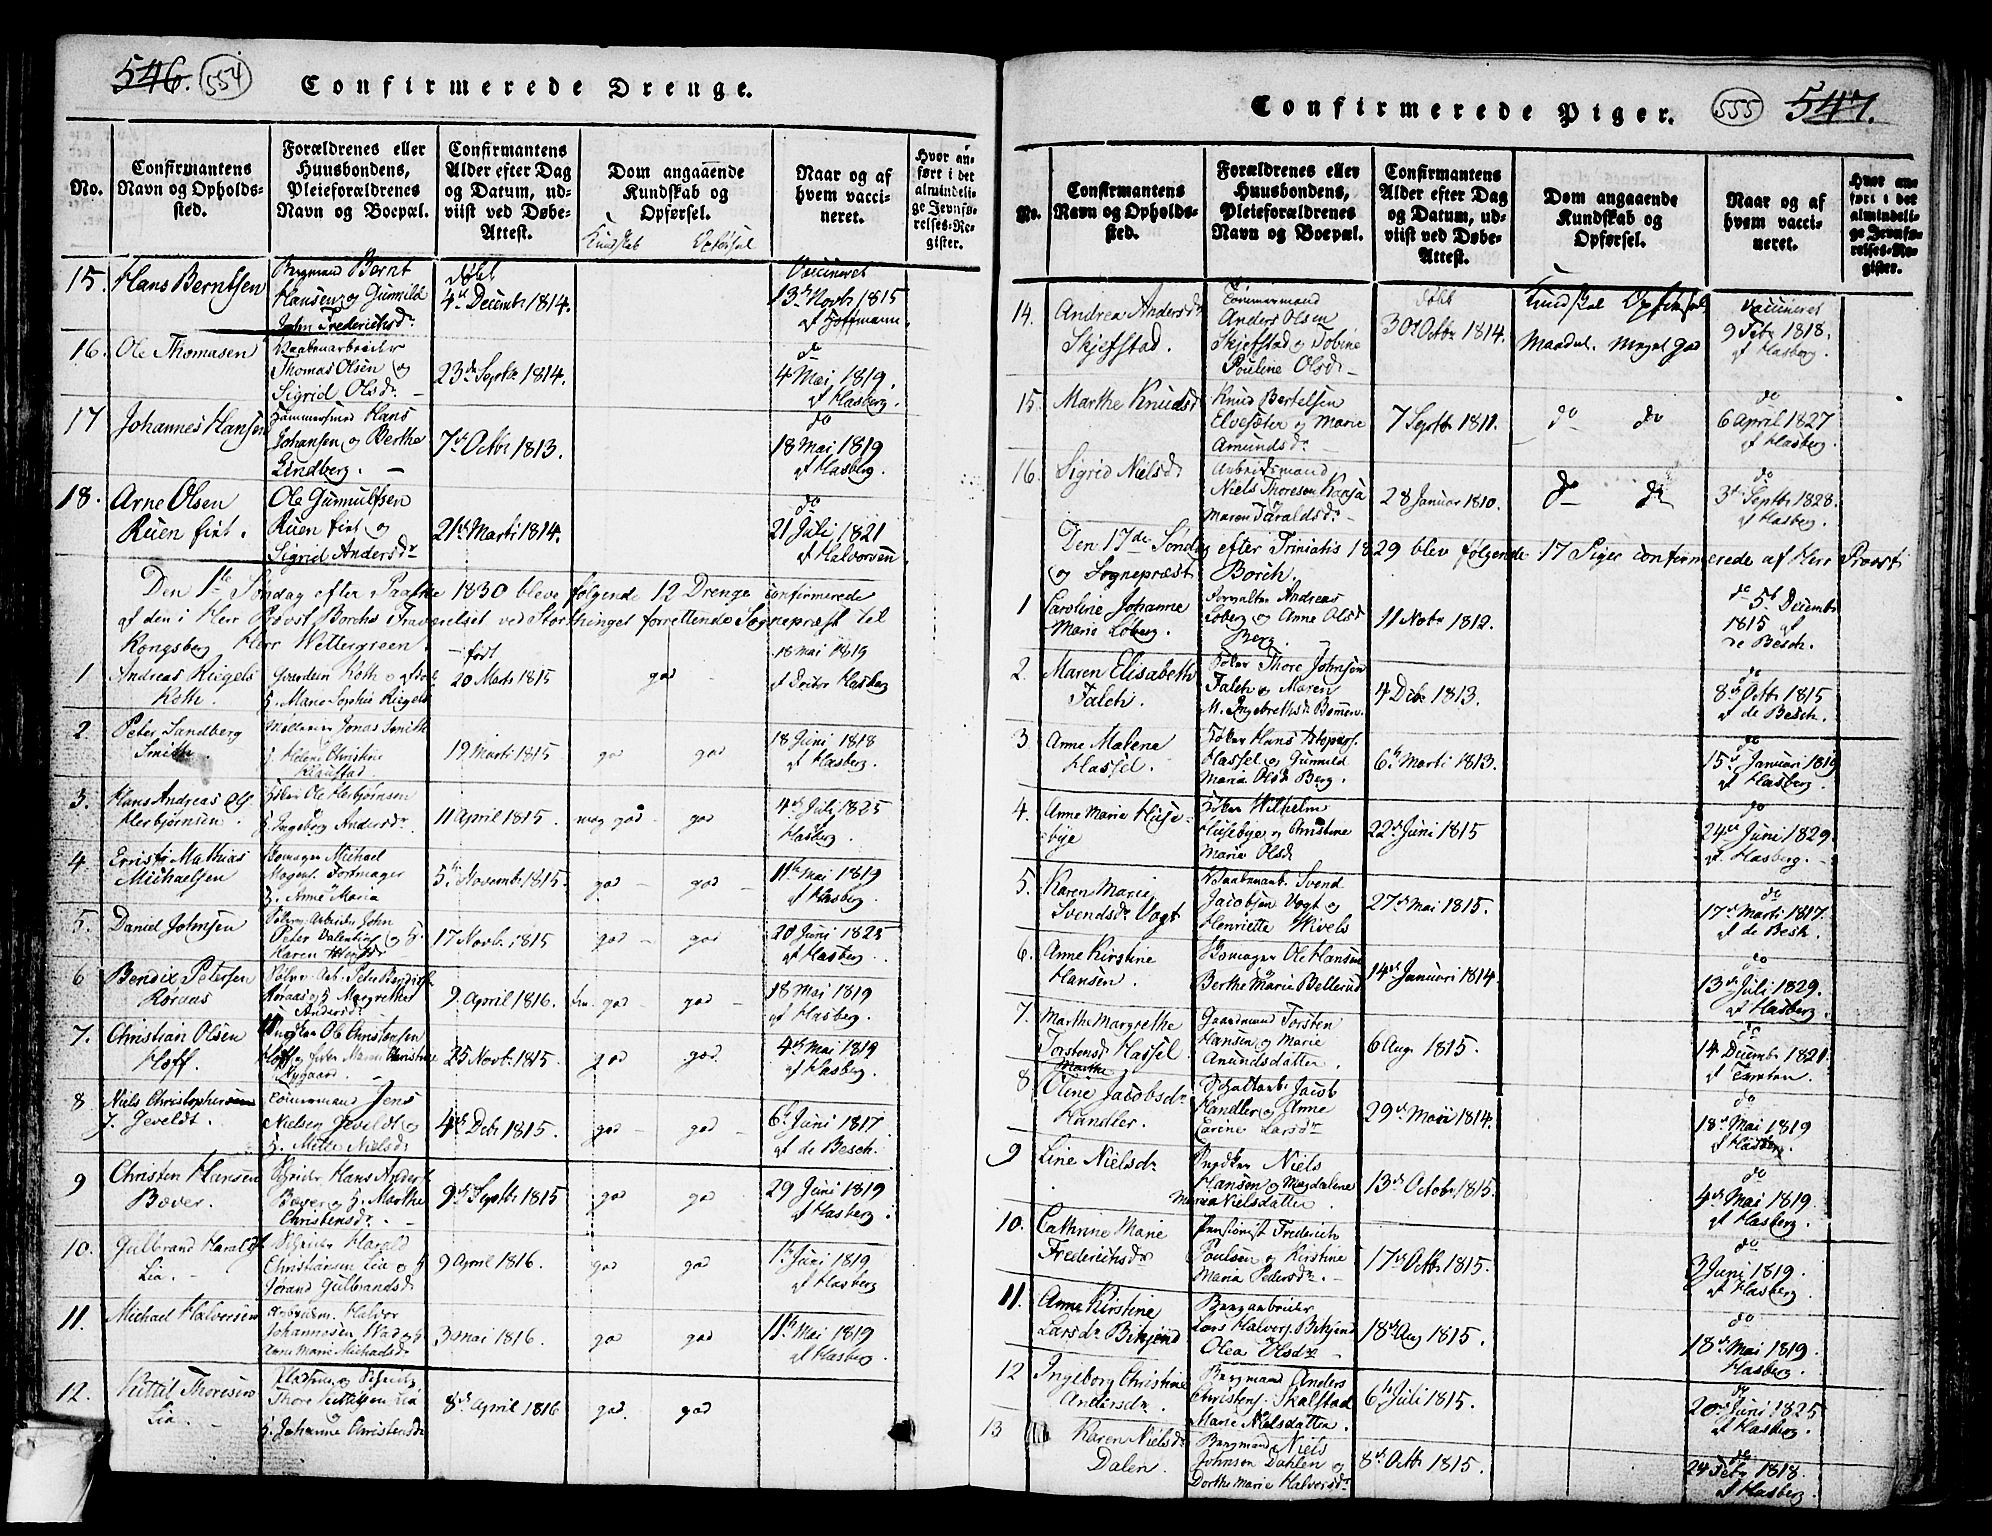 546. 554
Confirmerede Drenge.
No.
Confirmantens Navn og Opholds-sted.
Forældrenes eller Huusbondens, Pleieforældrenes Navn og Boepæl.
Confirmantens Alder efter Dag og Datum, ud-viist ved Døbe-Attest.
Dom angaaende Kundskab og Opførsel.
Kundskab Opførsel
Naar og af hvem vacci-neret.
Hvor an-ført i det almindeli-ge Jevnfø-relses-Re-gister.
15. Hans Berntsen
Bergmand Bernt
Hansen og Gunnild
John Frederichsdr.
døbt
4de Decembr 1814.
Vaccineret
13de Novbr 1815
af Hoffmann.
16. Ole Thomasen
Thomas Olsen og
Sigrid Olsdr. -
23de Septbr 1814.
do
4 Mai 1819.
af Hasberg.
17 Johannes Hansen
Hammersmed Hans
Johansen og Berthe
Lindberg. -
7de Octbr 1813.
do
18 Mai 1819
af Hasberg.
18. Arne Olsen
Ruen fint.
Ole Gunnulfsen
Ruen fint og
Sigrid Andersdr
21de Marti 1814.
do
21 Juli 1821
af Halvorsen
Den 1te Søndag efter Paaske 1830 bleve følgende 12 Drenge confirmerede
af den i Herr Provst Borchs Fraværelse ved Storthinget forrettende Sognepræst til
Kongsberg Herr Wettergreen.
1 Andreas Riegels
Roth.
Guardein Roth og
H. Marie Sophie Riegels
født
20 Marti 1815
god
18 Mai 1819
af Doctor Hasberg
2 Peter Sandberg
Smith.
Jonas Smith
H. Helene Christine
Klaustad
19 Marti 1815
go god
18 Juni 1818
af Hasberg.
3. Hans Andreas Ols
Herbjørnsen.
Ole Herbjørnsen
H. Ingeborg Andersdr.
11 April 1815.
meg god - god
4de Juli 1825
Hasberg.
4 Ernst Mathias
Michaelsen
Bomager Michael
Mogens. Formager
H. Anne Maria
5te Novembr 1815.
god - god
11te Mai 1819
af Hasberg.
5. Daniel Johnsen
Sølverarbeider John
Peter Valentin og H.
17 Novbr 1815
god - god
20 Juni 1825
af Hasberg.
6 Bendix Petersen
Røraas
Røraas og H. Margrethe
Andersdr
9 April 1816.
god god -
18 Mai 1819
af Hasberg.
7. Christian Olsen
Hoff.
Ole Christensen
Hoff og Maren Christine
Nygaard
25 Novbr 1815.
god god.
4de Mai 1819
af Hasberg.
8 Niels Christophersen
J. Jeveldt.
Tømmermand Jens
Nielsen Jeveldt og
H. Mette Nielsdr
4de Decbr 1815.
god - god -
6te Juni 1817.
af de Besch.
9 Christen Hansen
Bæver.
Skrider Hans Anders
Bæver og H. Marthe
Christensdr. -
9de Septbr 1815
god god
29 Juni 1819
af Hasberg.
10. Gulbrand Haralds
Lia. -
Harald
Christiansen Lia og H
Jørand Gulbrandsd.
9 April 1816.
god god
1te Juni 1819
af Hasberg
11. Michael Halvorsen
Arbeidsm. Halvor
Johannesen Wad og H
Anne Marie Michaelsdr
3 Mai 1816.
go god
11te Mai 1819
af Hasberg.
12. Kittil Thoresen
Lia. -
Thore Kittilsen Lia
H. Johanne Christensdr
8de April 1816
god. god
555 547.
Confirmerede Piger.
No.
Confirmantens Navn og Opholds-sted.
Forældrenes eller Huusbondens, Pleieforældrenes Navn og Boepæl.
Confirmantens Alder efter Dag og Datum, ud-viist ved Døbe-Attest.
Dom angaaende Kundskab og Opførsel.
Naar og af hvem vacci-neret.
Hvor an-ført i det almindeli-ge Jevnfø-relses-Re-gister.
14. Andrea Andersdr
Skjefstad.
Tømmermand
Anders Olsen
Skjefstad og Tobine
Pouline Olsdr -
døbt
30 Octbr 1814.
Kundskab Opførsel
Maadel. Meget god
Vaccineret
9 Febr 1818.
af Hasberg.
15. Marthe Knudsdr
Knud Bertelsen
Elvesæter og Marie
Amundsdr.
7 Septbr 1811.
do do
do
6 April 1827
af Hasberg.
16. Sigrid Nielsdr
Arbeidsmand
Niels Thoresen Kaasa
Maren Taraldsdr. -
28 Januar 1810.
do do
do
3de Septbr 1828.
af Hasberg.
Den 17de Søndag efter Trinitatis 1829 blev følgende 17 Piger confirmerede af Herr Provst
og Sognepræst Borch.
1 Caroline Johanne
Marie Løberg.
Forvalter Andreas
Løberg og Anne Olsd
Berg.
11 Novbr 1812.
do 5te Decembr
1815 af
de Besch.
2. Maren Elisabeth
Falch.
Thore Johnsen
Falch og Maren
M. Ingebrethsdr Bomen.
4 Decbr 1813.
do
8de Octbr 1815
af de Besch.
3 Anne Malene
Hassel.
Hans
Hassel og Gunnild
Maria Olsdr Berg.
6te Marti 1813.
do
15de Januari 1819
af Hasberg.
4. Anne Marie Huse-
bye
Wilhelm
Husebye og Christine
Marie Olsdr
22de Juni 1815
do
24de Juni 1829
af Hasberg. -
5. Karen Marie
Svendsdr Vogt
Svend
Jacobsen Vogt og
Henriette Wivels
27de Mai 1815.
do
17de Marti 1817.
af de Besch.
6. Anne Kirstine
Hansen.
Bomager Ole Hansen
Berthe Maria Bellerud
14de Januari 1814.
do
13de Juli 1829.
af Hasberg.
7. Marthe Margrethe
Torstensdr Hassel.
Gaardmand Torsten
Hansen og Marie
Anundsdatter.
6 Aug 1815.
do
14 Decembr 1821.
8 Marthe
Oline Jacobsdr
Handler.
Jacob
Handler og Anne
Carine Larsdr
29de Marti 1814.
do
18de Mai 1819
af Hasberg
9 Line Nielsdr
Niels
Hansen og Magdalene
Maria Nielsdatter.
13de Octobr 1815.
do
4de Mai 1819
af Hasberg.
10. Cathrine Marie
Frederichsdr
Pensionist Frederich
Poulsen og Kirstine
Maria Pedersdr. -
17de Octbr 1815.
do
3 Juni 1819.
af Hasberg.
11. Anne Kirstine
Larsdr Bikjend
Bergarbeider
Lars Halvors. Bikjend
Olea Olsdr -
18de Aug 1815.
do
18de Mai 1819.
Hasberg.
12 Ingeborg Christine
Andersdr.
Bergmand Anders
Christens. Skalstad
Marie Nielsdatter.
6te Juli 1815.
do
20de Juni 1825
af Hasberg.
13 Karen Nielsdr
Dalen.
Bergmand Niels
Johnsen Dahlen og
Dorthe Marie Halvorsdr
8de Octbr 1815.
do
24 Febr 1818.
af Hasberg.